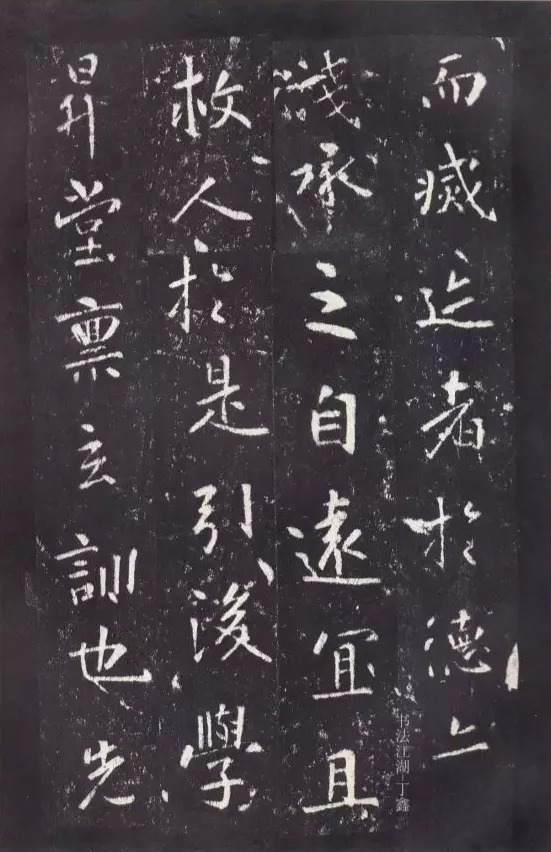 而滅迹者於德之
淺承之自遠宜且
救人於是引後學
昇堂禀玄訓也先
书法江湖丁鑫